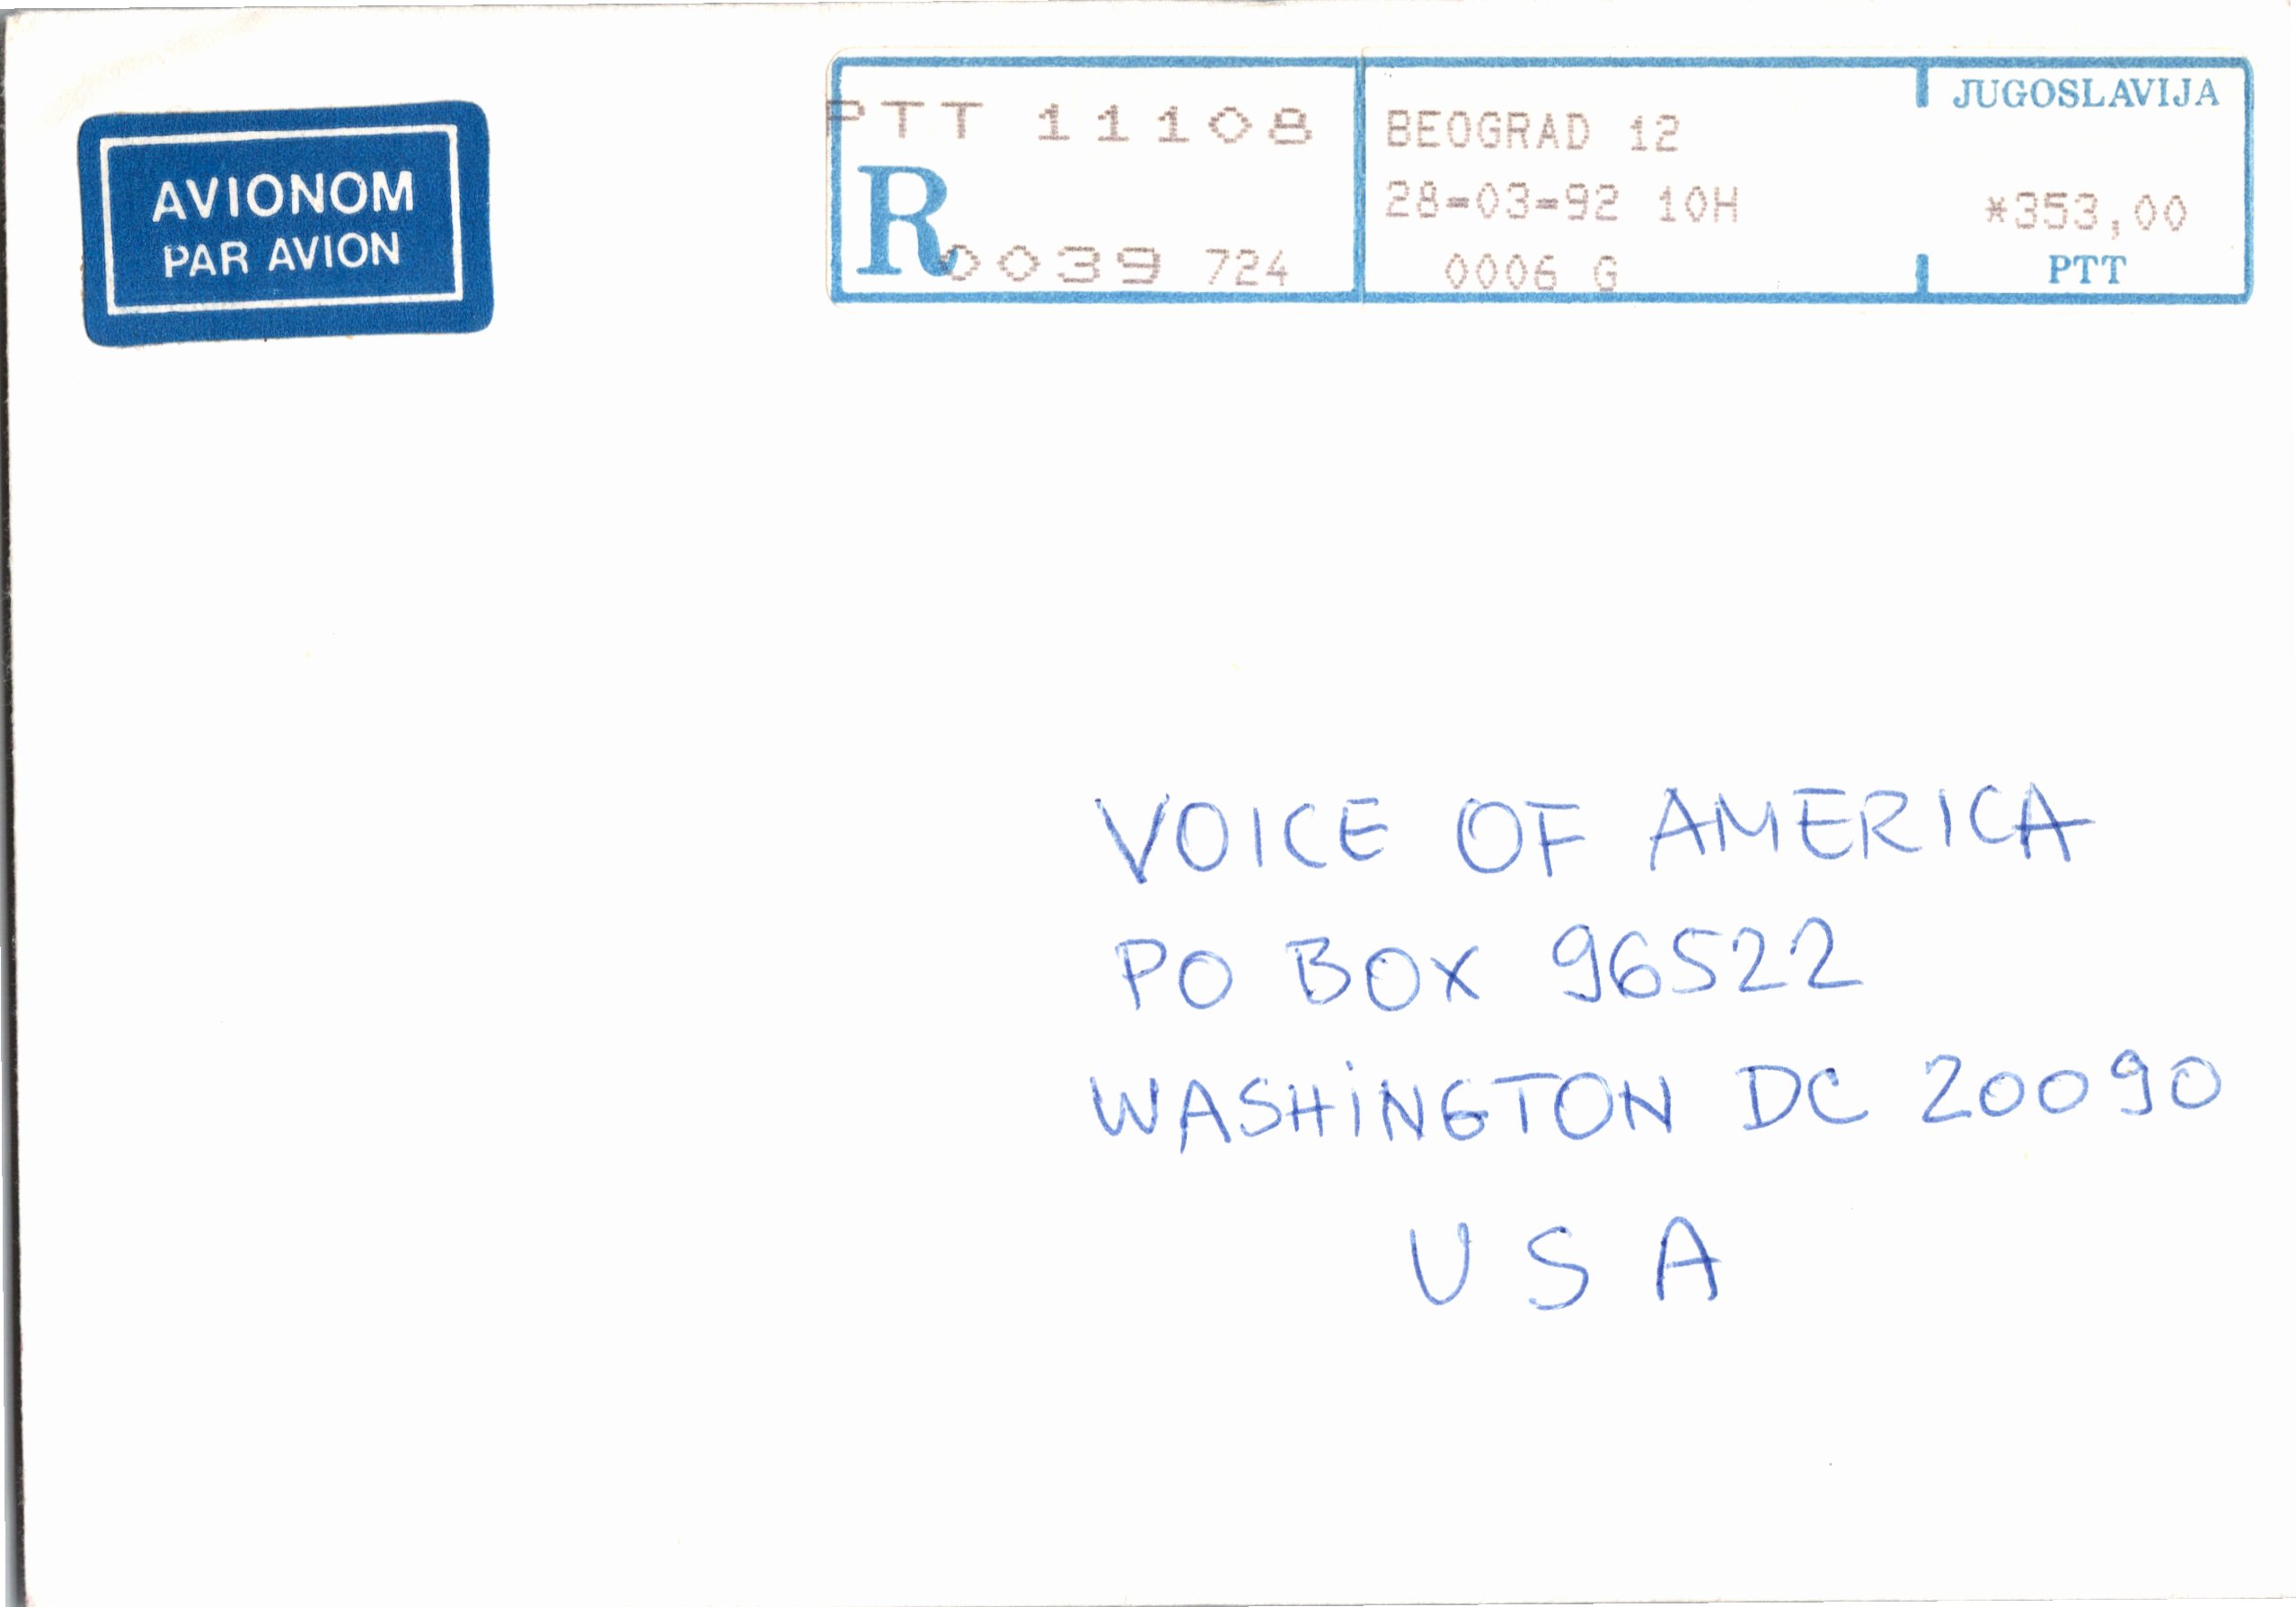 AVIONOM
PAR AVION
PTT 11108
R
0039 724
BEOGRAD 12
28-03-92 10H
0006 G
JUGOSLAVIJA
*353,00
PTT
VOICE OF AMERICA
PO BOX 96522
WASHINGTON DC 20090
USA